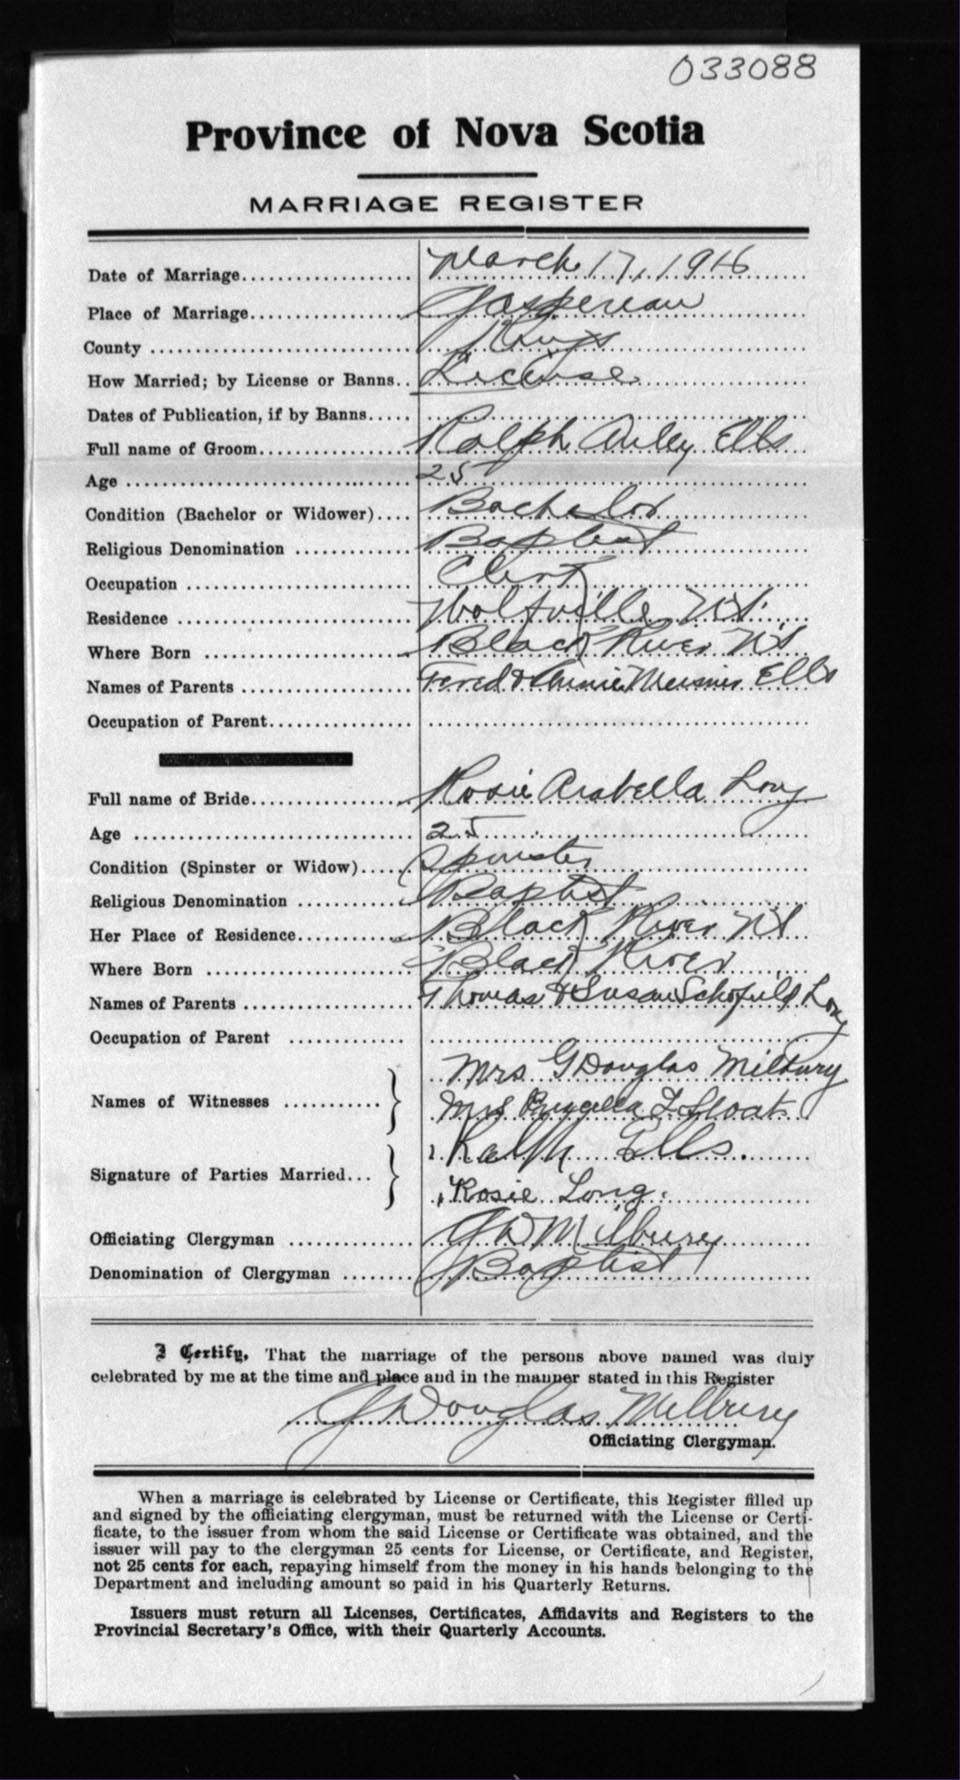 033088
Province of Nova Scotia
MARRIAGE REGISTER
Date of Marriage.................. March 17, 1916
Place of Marriage................. Gaspereau
County ............................ Kings
How Married; by License or Banns.. License
Dates of Publication, if by Banns.....
Full name of Groom................ Ralph Ells
Age ............................... 25
Condition (Bachelor or Widower).... Bachelor
Religious Denomination ............ Baptist
Occupation ........................ Clerk
Residence ......................... Wolfville N.S.
Where Born ........................ Black River NS
Names of Parents .................. Fred & Annie Meisner Ells
Occupation of Parent...............
Full name of Bride................. Rosie Arabella Long
Age ............................... 25
Condition (Spinster or Widow)...... Spinster
Religious Denomination ............ Baptist
Her Place of Residence............. Black River NS
Where Born ........................ Black River
Names of Parents .................. Thomas & Susan Schofield Long
Occupation of Parent .............
Mrs G Douglas Milbury
Names of Witnesses ...........
Mrs F
1 Ralph Ells.
Signature of Parties Married...
Rosie Long.
Officiating Clergyman ............. G D Milbury
Denomination of Clergyman ........ Baptist
I Certify, That the marriage of the persons above named was duly
celebrated by me at the time and place and in the manner stated in this Register
G Douglas Milbury
Officiating Clergyman.
When a marriage is celebrated by License or Certificate, this Register filled up
and signed by the officiating clergyman, must be returned with the License or Certi-
ficate, to the issuer from whom the said License or Certificate was obtained, and the
issuer will pay to the clergyman 25 cents for License, or Certificate, and Register,
not 25 cents for each, repaying himself from the money in his hands belonging to the
Department and including amount so paid in his Quarterly Returns.
Issuers must return all Licenses, Certificates, Affidavits and Registers to the
Provincial Secretary's Office, with their Quarterly Accounts.